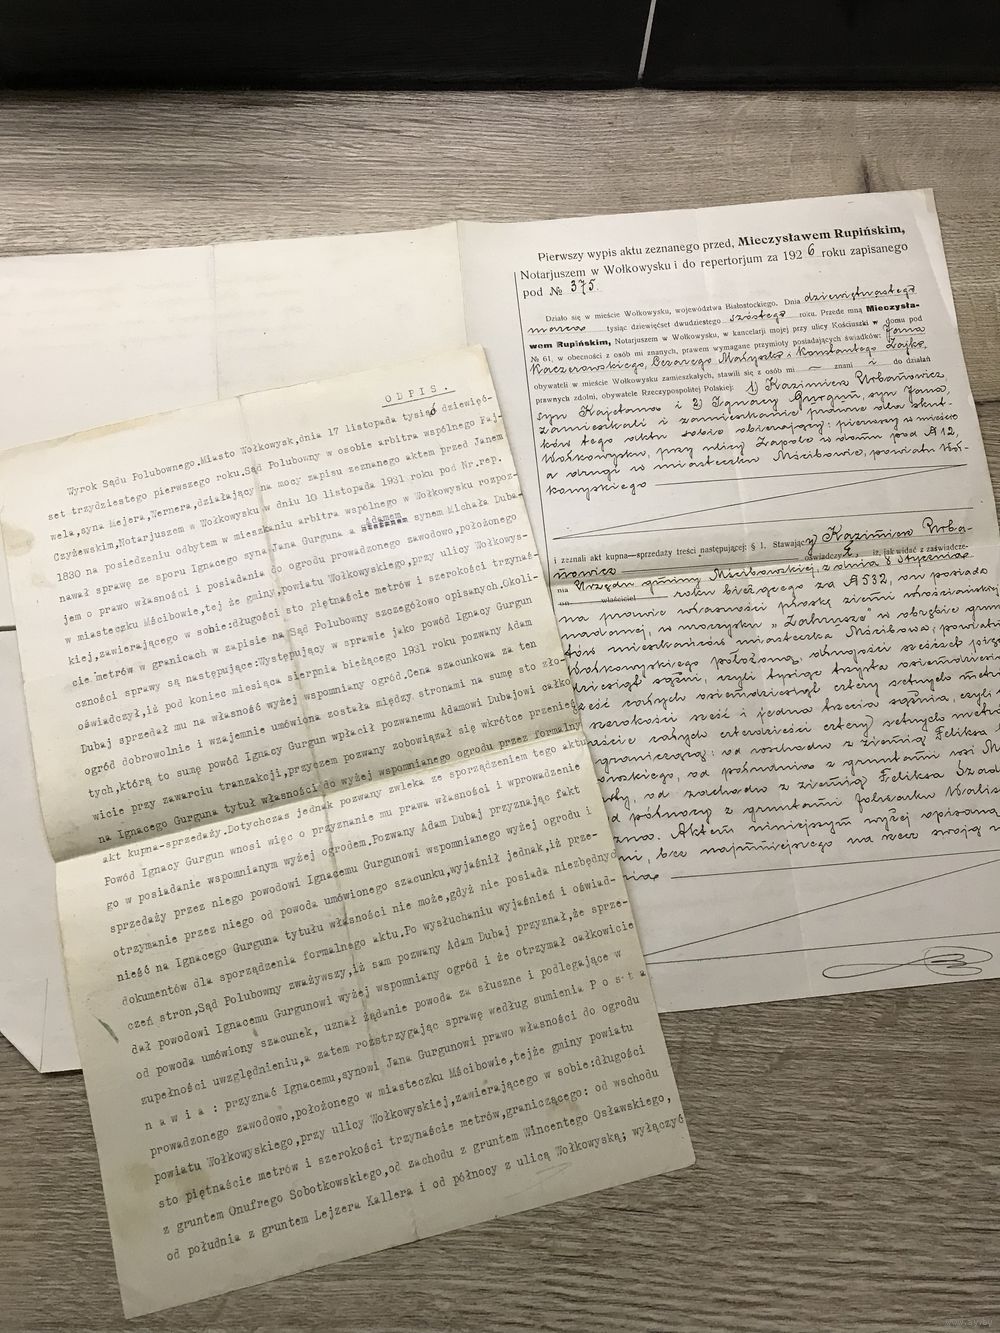 Pierwszy wypis aktu zeznanego przed, Mieczysławem Rupińskim,
Notarjuszem w Wołkowysku i do repertorjum za 1926 roku zapisanego
pod № 375
Działo się w mieście Wołkowysku, województwa Białostockiego, Dnia dziewiętnastego
marca tysiąc dziewięćset dwudziestego szóstego roku. Przede mną Mieczysła-
wem Rupińskim, Notarjuszem w Wołkowysku, w kancelarji mojej przy ulicy Kościuszki w domu pod
№ 61, w obecności z osób mi znanych, prawem wymagane przymioty posiadających świadków: Jana
Kaczorowskiego, Cezarego Małyszko i Konstantego Zajko,
obywateli w mieście Wołkowysku zamieszkałych, stawili się z osób mi znani i do działań
prawnych zdolni, obywatele Rzeczypospolitej Polskiej: 1) Kazimierz Urbanowicz,
syn Kajetana i 2) Ignacy Gurgun, syn Jana,
zamieszkali i zamieszkanie prawne dla skut-
ków tego aktu sobie obierający: pierwszy w mieście
Wołkowysku, przy ulicy Zapole w domu pod № 12,
a drugi w miasteczku Mścibowie, powiatu Woł-
kowyskiego
i zeznali akt kupna—sprzedaży treści następującej: § 1. Stawający Kazimierz Urba-
nowicz oświadczył, iż, jak widać z zaświadcze-
nia Urzędu gminy Mścibowskiej, z dnia 8 stycznia
roku bieżącego za № 532, on posiada
na prawie własności działkę ziemi włościańskiej
nadanej, w uroczysku "Zabrusze" w obrębie grun-
tów mieszkańców miasteczka Mścibowa, powiatu
Wołkowyskiego położoną, długości sześćset pięć-
dziesiąt sążni, czyli tysiąc trzysta osiemdziesiąt
sześć całych osiemdziesiąt cztery setnych metra
szerokości sześć i jedna trzecia sążnia, czyli
całych czterdzieści cztery setnych metra
graniczącą: od wschodu z ziemią Feliksa
od południa z gruntami wsi
od zachodu z ziemią Feliksa
północy z gruntami folwarku
Aktem niniejszym wyżej opisaną
bez najmniejszego na rzecz swoją
ODPIS.
Wyrok Sądu Polubownego.Miasto Wołkowysk,dnia 17 listopada tysiąć dziewięć-
set trzydziestego pierwszego roku.Sąd Polubowny w osobie arbitra wspólnego Faj-
wela,syna Mejera,Wernera,działający na mocy zapisu zeznanego aktem przed Janem
Czyżewskim,Notarjuszem w Wołkowysku w dniu 10 listopada 1931 roku pod Nr.rep.
1830 na posiedzeniu odbytem w mieszkaniu arbitra wspólnego w Wołkowysku rozpoz-
nawał sprawę ze sporu Ignacego syna Jana Gurguna a Adamem synem Michała Duba-
jem o prawo własności i posiadania do ogrodu prowadzonego zawodowo,położonego
w miasteczku Mścibowie,tej że gminy,powiatu Wołkowyskiego,przy ulicy Wołkowys-
kiej,zawierającego w sobie:długości sto piętnaście metrów i szerokości trzynaś-
cie metrów w granicach w zapisie na Sąd Polubowny szczegółowo opisanych.Okoli-
czności sprawy są następujące:Występujący w sprawie jako powód Ignacy Gurgun
oświadczył,iż pod koniec miesiąca sierpnia bieżącego 1931 roku pozwany Adam
Dubaj sprzedał mu na własność wyżej wspomniany ogród.Cena szacunkowa za ten
ogród dobrowolnie i wzajemnie umówiona została między stronami na sumę sto zło-
tych,którą to sumę powód Ignacy Gurgun wpłacił pozwanemu Adamowi Dubajowi całko
wicie przy zawarciu tranzakcji,przyczem pozwany zobowiązał się wkrótce przenieś
na Ignacego Gurguna tytuł własności do wyżej wspomnianego ogrodu przez formalny
akt kupna-sprzedaży.Dotychczas jednak pozwany zwleka ze sporządzeniem tego aktu
Powód Ignacy Gurgun wnosi więc o przyznanie mu prawa własności i wprowadzenie
go w posiadanie wspomnianym wyżej ogrodem.Pozwany Adam Dubaj przyznając fakt
sprzedaży przez niego powodowi Ignacemu Gurgunowi wspomnianego wyżej ogrodu i
otrzymanie przez niego od powoda umówionego szacunku,wyjaśnił jednak,iż prze-
nieść na Ignacego Gurguna tytułu własności nie może,gdyż nie posiada niezbędnyc
dokumentów dla sporządzenia formalnego aktu.Po wysłuchaniu wyjaśnień i oświad-
czeń stron,Sąd Polubowny zważywszy,iż sam pozwany Adam Dubaj przyznał,że sprze-
dał powodowi Ignacemu Gurgunowi wyżej wspomniany ogród i że otrzymał całkowicie
od powoda umówiony szacunek, uznał żądanie powoda za słuszne i podlegające w
zupełności uwzględnieniu,a zatem rozstrzygając sprawę według sumienia P o s t a
n a w i a : przyznać Ignacemu,synowi Jana Gurgunowi prawo własności do ogrodu
prowadzonego zawodowo,położonego w miasteczku Mścibowie,tejże gminy powiatu
powiatu Wołkowyskiego,przy ulicy Wołkowyskiej,zawierającego w sobie:długości
sto piętnaście metrów i szerokości trzynaście metrów,graniczącego: od wschodu
z gruntem Onufrego Sobotkowskiego,od zachodu z gruntem Wincentego Osławskiego,
od południa z gruntem Lejzera Kallera i od północy z ulicą Wołkowyską; wyłączyć
www.ay.by